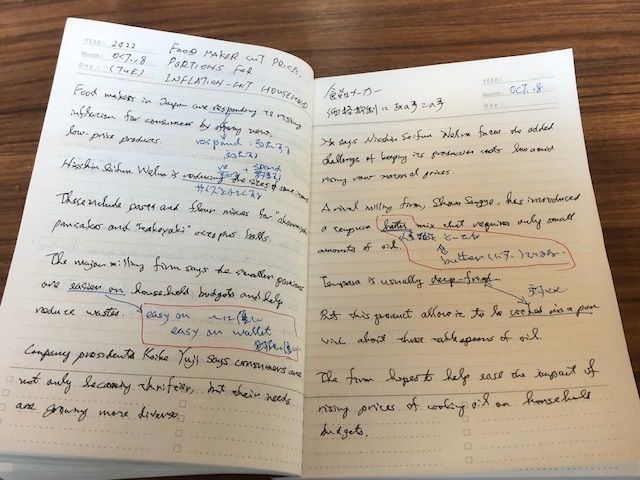 YEAR: 2022
Month: OCT., 8
Day: (TUE)
FOOD MAKER CUT PRICES,
PORTIONS FOR
INFLATION-HIT HOUSEHOLD
Food makers in Japan are responding to rising
inflation for consumers by offering new,
low-price products.
respond:
Nisshin Seifun Welna is reducing the sizes of some items
These include pasta and flour mixes for "okonomiyaki"
pancakes and "takoyaki" octopus balls.
The major milling firm says the smaller portions
are easier on household budgets and help
reduce wastes.
easy on
easy on wallet
Company president Koike Yuji says consumers are
not only becoming thriftier, but their needs
are growing more diverse.
YEAR:
Month: OCT., 8
Day:
He says Nisshin Seifun Welna faces the added
challenge of keeping its production costs low amid
rising raw material prices.
A rival milling firm, Showa Sangyo, has introduced
a tempura batter mix that requires only small
amounts of oil.
butter
Tempura is usually deep-fried.
But this product allows it to be cooked in a pan
with about three tablespoons of oil.
The firm hopes to help ease the impact of
rising prices of cooking oil on household
budgets.